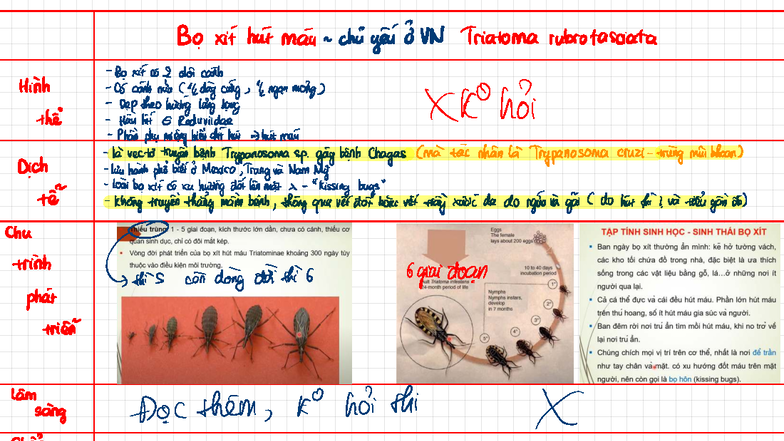 Bọ xít hút máu ~ chủ yếu ở VN Triatoma rubrofasciata
Hình
thể
- Bọ xít có 2 đôi cánh
- Có cánh nửa (½ dày cứng, ½ ngọn mỏng)
- Dẹp theo hướng lưng bụng
- Hầu hết ∈ Reduviidae
- Phần phụ miệng kiểu chích hút → hút máu
X K⁰ hỏi
Dịch
tễ
- là vector truyền bệnh Trypanosoma sp. gây bệnh Chagas (mà tác nhân là Trypanosoma cruzi - trùng mũi khoan)
- lưu hành phổ biến ở Mexico, Trung và Nam Mỹ
- loài bọ xít có xu hướng đốt lên mặt - "kissing bugs"
- không truyền thẳng mầm bệnh, thông qua vết đốt hoặc vết trầy xước da do ngứa và gãi
Chu
trình
phát
triển
Thiếu trùng: 1 - 5 giai đoạn, kích thước lớn dần, chưa có cánh, thiếu cơ
quan sinh dục, chỉ có đôi mắt kép.
• Vòng đời phát triển của bọ xít hút máu Triatominae khoảng 300 ngày tùy
thuộc vào điều kiện môi trường.
→ thì 5 còn dùng đổi thì 6
6 giai đoạn
Eggs
The female
lays about 200 eggs
10 to 40 days
incubation period
Nymphs
Nymphs instars,
develop
in 7 months
TẬP TÍNH SINH HỌC - SINH THÁI BỌ XÍT
• Ban ngày bọ xít thường ẩn mình: kẽ hở tường vách,
các kho tối chứa đồ trong nhà, đặc biệt là ưa thích
sống trong các vật liệu bằng gỗ, là…ở những nơi ít
người qua lại.
• Cả cá thể đực và cái đều hút máu. Phần lớn hút máu
trên thú hoang, số ít hút máu gia súc và người.
• Ban đêm rời nơi trú ẩn tìm mồi hút máu, khi no trở về
lại nơi trú ẩn.
• Chúng chích mọi vị trí trên cơ thể, nhất là nơi để trần
như tay chân và mặt. có xu hướng đốt máu trên mặt
người, nên còn gọi là bọ hôn (kissing bugs).
Lâm
sàng
Đọc thêm, K⁰ hỏi thi X